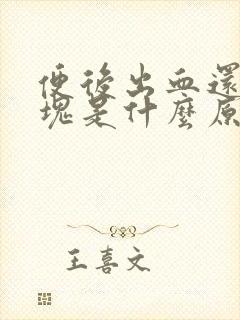 便後出血還
塊是什麼原
王喜文